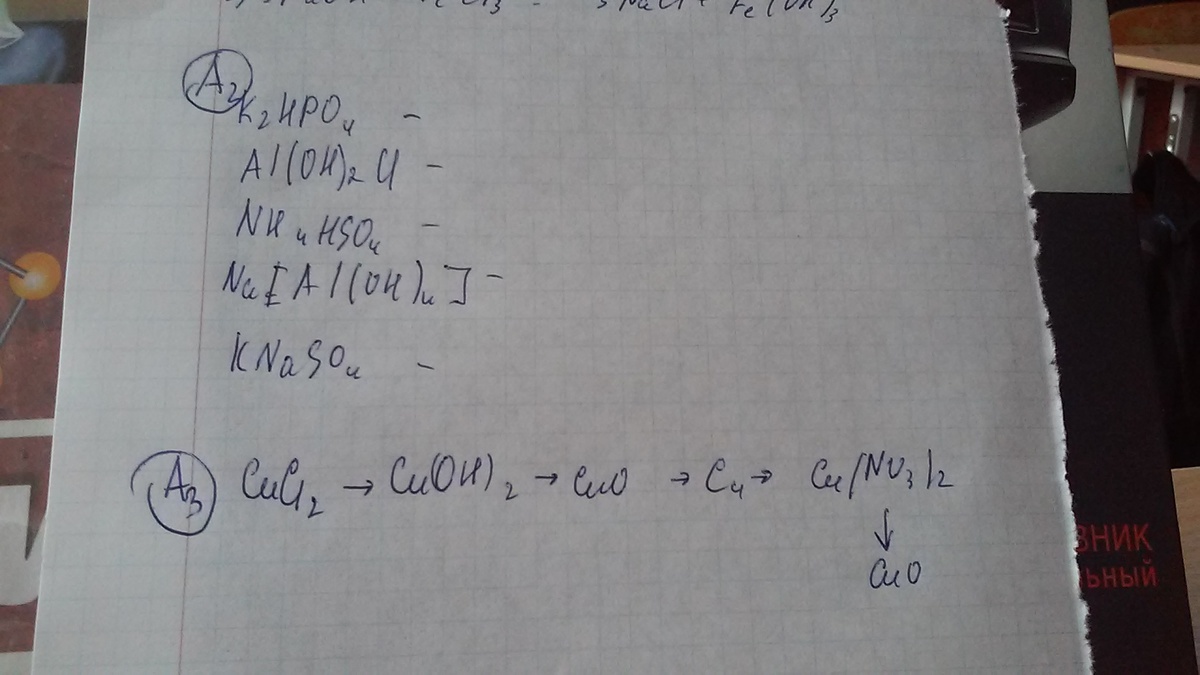 3NaCl + Fe(OH)3
A2
K2HPO4 -
Al(OH)2Cl -
NH4HSO4 -
Na[Al(OH)4] -
KNaSO4 -
A3 CuCl2 → Cu(OH)2 → CuO → Cu → Cu(NO3)2
↓
CuO
ВНИК
ЬНЫЙ